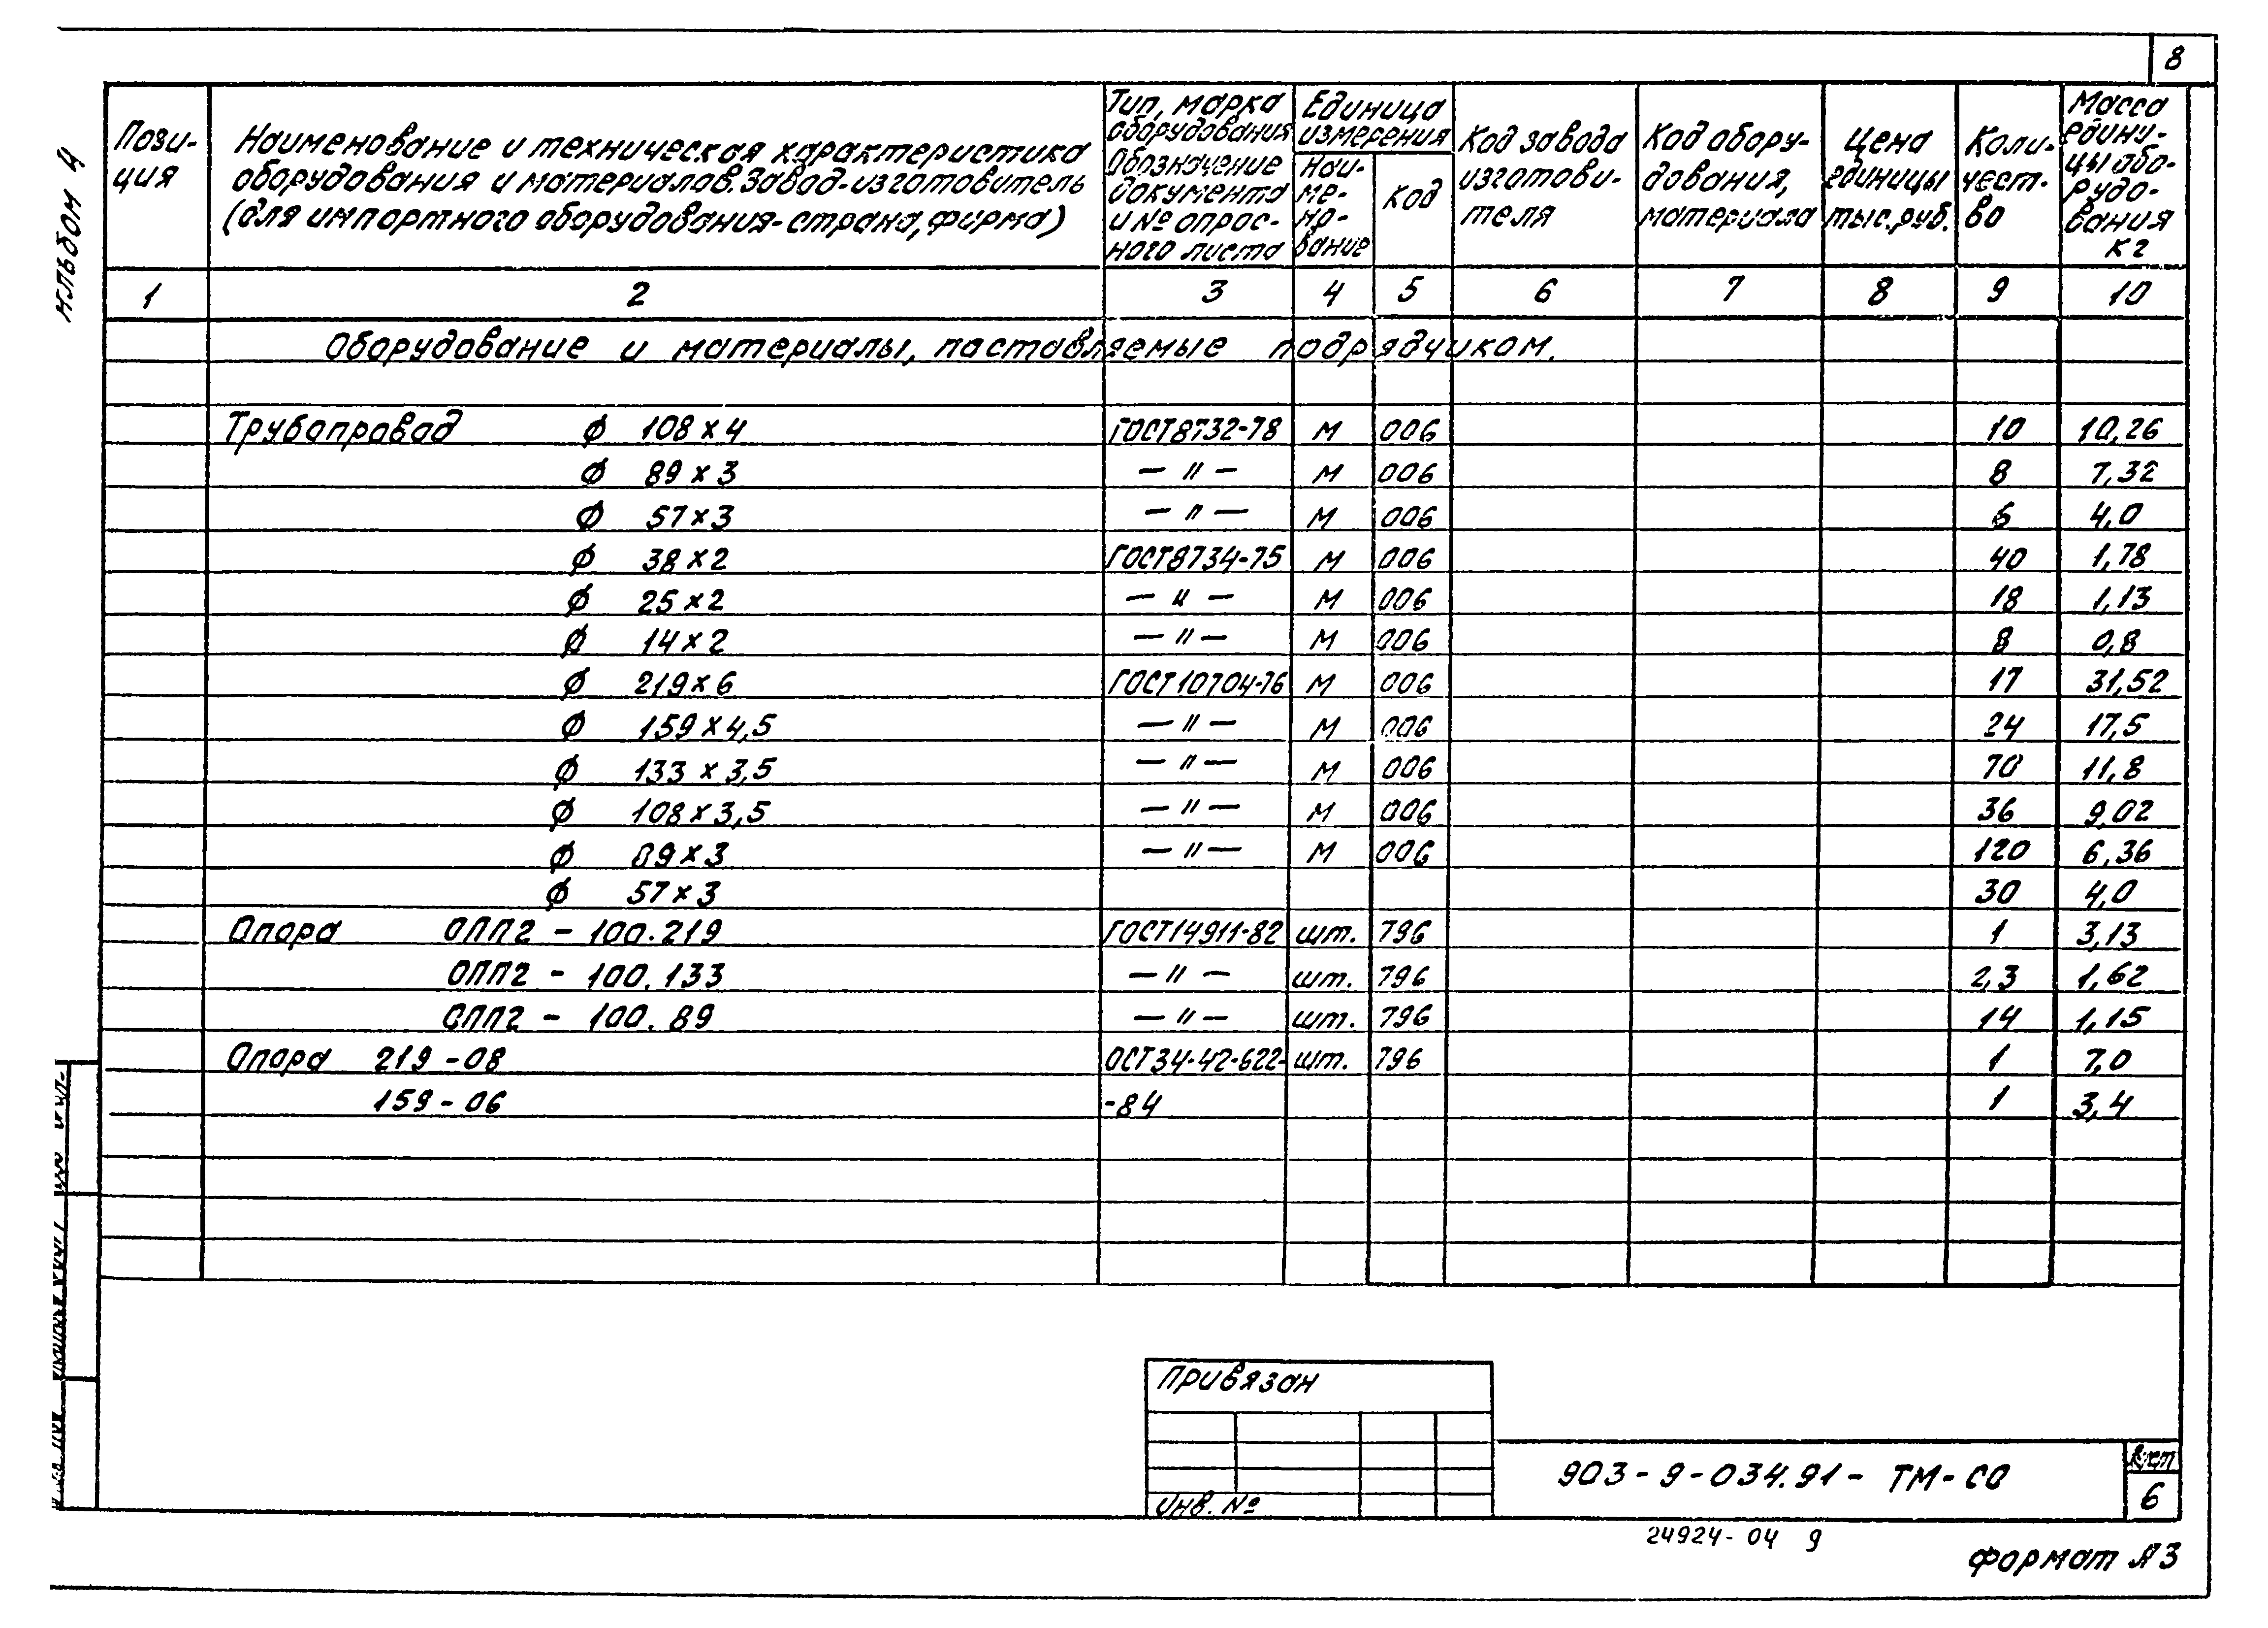 8
Альбом 4
Пози-
ция
Наименование и техническая характеристика
оборудования и материалов. Завод-изготовитель
(для импортного оборудования-страна, фирма)
Тип, марка
оборудования
Обозначение
документа
и № опрос-
ного листа
Единица
измерения
Наи-
ме-
но-
вание
Код
Код завода
изготови-
теля
Код обору-
дования,
материала
Цена
единицы
тыс.руб.
Коли-
чест-
во
Масса
едини-
цы обо-
рудо-
вания
кг
1 2 3 4 5 6 7 8 9 10
Оборудование и материалы, поставляемые подрядчиком.
Трубопровод ф 108×4 ГОСТ8732-78 м 006 10 10,26
ф 89×3 — " — м 006 8 7,32
ф 57×3 — " — м 006 6 4,0
ф 38×2 ГОСТ8734-75 м 006 40 1,78
ф 25×2 — " — м 006 18 1,13
ф 14×2 — " — м 006 8 0,8
ф 219×6 ГОСТ10704-76 м 006 17 31,52
ф 159×4,5 — " — м 006 24 17,5
ф 133×3,5 — " — м 006 70 11,8
ф 108×3,5 — " — м 006 36 9,02
ф 89×3 — " — м 006 120 6,36
ф 57×3 30 4,0
Опора ОПП2 - 100.219 ГОСТ14911-82 шт. 796 1 3,13
ОПП2 - 100.133 — " — шт. 796 2,3 1,62
ОПП2 - 100.89 — " — шт. 796 14 1,15
Опора 219-08 ОСТ34-42-622- шт. 796 1 7,0
159-06 -84 1 3,4
Привязан
Инв. №
903-9-034.91- ТМ-СО
Лист
6
24924-04 9
Формат А3